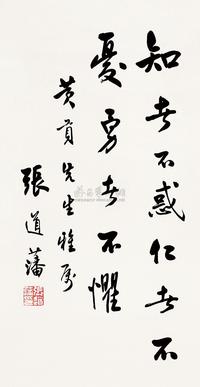 知者不惑仁者不
憂勇者不懼
黄貢先生雅屬
張道藩